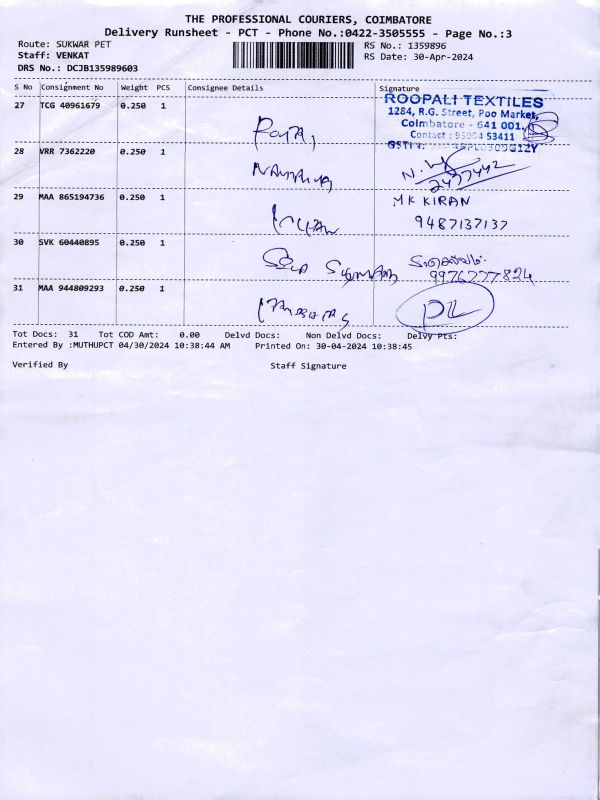 THE PROFESSIONAL COURIERS, COIMBATORE
Delivery Runsheet - PCT - Phone No.:0422-3505555 - Page No.:3
Route: SUKWAR PET
RS No.: 1359896
Staff: VENKAT
RS Date: 30-Apr-2024
DRS No.: DCJB135989603
S No Consignment No Weight PCS Consignee Details Signature
27 TCG 40961679 0.250 1
ROOPALI TEXTILES
1284, R.G. Street, Poo Market,
Coimbatore - 641 001.
Contact : 95004 53411
28 VRR 7362220 0.250 1
29 MAA 865194736 0.250 1
MK KIRAN
9487137137
30 SVK 60440895 0.250 1
9976277824
31 MAA 944809293 0.250 1
Tot Docs: 31 Tot COD Amt: 0.00 Delvd Docs: Non Delvd Docs: Delvy Pts:
Entered By :MUTHUPCT 04/30/2024 10:38:44 AM Printed On: 30-04-2024 10:38:45
Verified By Staff Signature